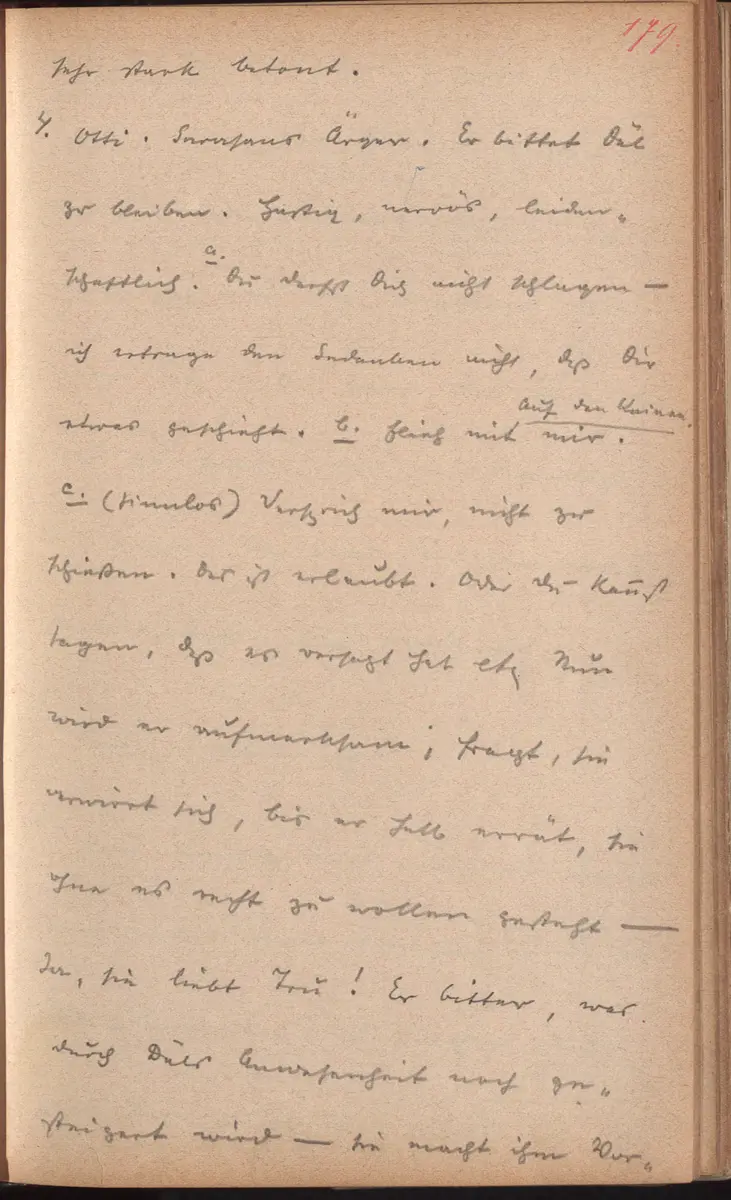 179.
sehr stark betont.
4. Otti. Sarasans Ärger. Er bittet Dül
zu bleiben. Hastig, nervös, leiden„
schaftlich. a. Du darfst Dich nicht schlagen —
ich ertrage den Gedanken nicht, daß Dir
auf den Knieen.
etwas geschieht. b. Flieh mit mir.
c. (sinnlos) Versprich mir, nicht zu
schießen. Das ist erlaubt. Oder du kannst
sagen, daß es versagt hat etc Nun
wird er aufmerksam; fragt, sie
verwirrt sich, bis er halb errät, sie
ohne es recht zu wollen gesteht —
Ja, sie liebt Tru! Er bitter, was
durch Düls Anwesenheit noch ge„
steigert wird — sie macht ihm Vor„